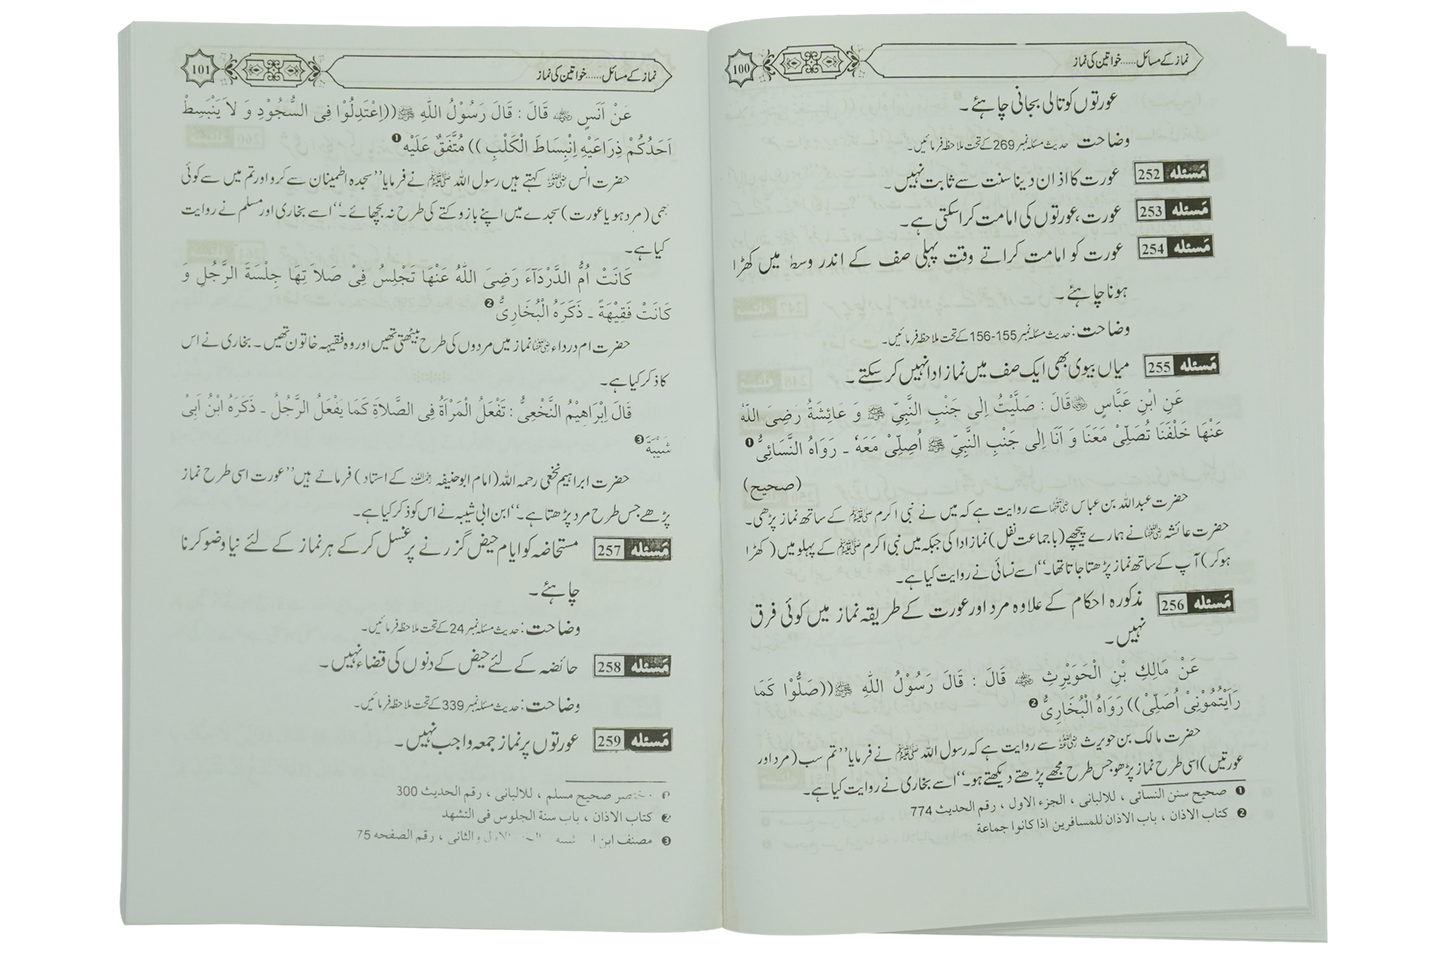 100 نماز کے مسائل.....خواتین کی نماز
عورتوں کو تالی بجانی چاہئے۔
وضاحت: حدیث مسئلہ نمبر 269 کے تحت ملاحظہ فرمائیں۔
مسئلہ 252 عورت کا اذان دینا سنت سے ثابت نہیں۔
مسئلہ 253 عورت، عورتوں کی امامت کرا سکتی ہے۔
مسئلہ 254 عورت کو امامت کراتے وقت پہلی صف کے اندر وسط میں کھڑا
ہونا چاہئے۔
وضاحت: حدیث مسئلہ نمبر 155-156 کے تحت ملاحظہ فرمائیں۔
مسئلہ 255 میاں بیوی بھی ایک صف میں نماز ادا نہیں کر سکتے۔
عَنِ ابْنِ عَبَّاسٍ ؓ قَالَ : صَلَّيْتُ اِلٰى جَنْبِ النَّبِيِّ ﷺ وَ عَائِشَةُ رَضِىَ اللّٰهُ
عَنْهَا خَلْفَنَا تُصَلِّىْ مَعَنَا وَ اَنَا اِلٰى جَنْبِ النَّبِيِّ ﷺ اُصَلِّىْ مَعَهٗ ۔ رَوَاهُ النَّسَائِىُّ ❶
(صحیح)
حضرت عبداللہ بن عباس ؓ سے روایت ہے کہ میں نے نبی اکرم ﷺ کے ساتھ نماز پڑھی۔
حضرت عائشہ ؓ نے ہمارے پیچھے (باجماعت نفل) نماز ادا کی جبکہ میں نبی اکرم ﷺ کے پہلو میں (کھڑا
ہو کر) آپ کے ساتھ نماز پڑھتا جاتا تھا۔‘‘ اسے نسائی نے روایت کیا ہے۔
مسئلہ 256 مذکورہ احکام کے علاوہ مرد اور عورت کے طریقہ نماز میں کوئی فرق
نہیں۔
عَنْ مَالِكِ بْنِ الْحَوَيْرِثِ ؓ قَالَ : قَالَ رَسُوْلُ اللّٰهِ ﷺ ((صَلُّوْا كَمَا
رَاَيْتُمُوْنِىْ اُصَلِّىْ)) رَوَاهُ الْبُخَارِىُّ ❷
حضرت مالک بن حویرث ؓ سے روایت ہے کہ رسول اللہ ﷺ نے فرمایا ’’تم سب (مرد اور
عورتیں) اسی طرح نماز پڑھو جس طرح مجھے پڑھتے دیکھتے ہو۔‘‘ اسے بخاری نے روایت کیا ہے۔
❶ صحيح سنن النسائى ، للالبانى ، الجزء الاول ، رقم الحديث 774
❷ كتاب الاذان ، باب الاذان للمسافرين اذا كانوا جماعة
101 نماز کے مسائل.....خواتین کی نماز
عَنْ اَنَسٍ ؓ قَالَ : قَالَ رَسُوْلُ اللّٰهِ ﷺ ((اِعْتَدِلُوْا فِى السُّجُوْدِ وَ لاَ يَنْبَسِطْ
اَحَدُكُمْ ذِرَاعَيْهِ اِنْبِسَاطَ الْكَلْبِ )) مُتَّفَقٌ عَلَيْهِ ❶
حضرت انس ؓ کہتے ہیں رسول اللہ ﷺ نے فرمایا ’’سجدہ اطمینان سے کرو اور تم میں سے کوئی
بھی (مرد ہو یا عورت) سجدے میں اپنے بازو کتے کی طرح نہ بچھائے۔‘‘ اسے بخاری اور مسلم نے روایت
کیا ہے۔
كَانَتْ اُمُّ الدَّرْدَآءَ رَضِىَ اللّٰهُ عَنْهَا تَجْلِسُ فِىْ صَلاَ تِهَا جِلْسَةَ الرَّجُلِ وَ
كَانَتْ فَقِيْهَةً ۔ ذَكَرَهُ الْبُخَارِىُّ ❷
حضرت ام درداء ؓ نماز میں مردوں کی طرح بیٹھتی تھیں اور وہ فقیہہ خاتون تھیں۔ بخاری نے اس
کا ذکر کیا ہے۔
قَالَ اِبْرَاهِيْمُ النَّخْعِىُّ : تَفْعَلُ الْمَرْأَةُ فِى الصَّلاَةِ كَمَا يَفْعَلُ الرَّجُلُ ۔ ذَكَرَهُ ابْنُ اَبِىْ
شَيْبَةَ ❸
حضرت ابراہیم نخعی رحمہ اللہ (امام ابو حنیفہ رحمہ اللہ کے استاد) فرماتے ہیں ’’عورت اسی طرح نماز
پڑھے جس طرح مرد پڑھتا ہے۔‘‘ ابن ابی شیبہ نے اس کو ذکر کیا ہے۔
مسئلہ 257 مستحاضہ کو ایام حیض گزرنے پر غسل کر کے ہر نماز کے لئے نیا وضو کرنا
چاہئے۔
وضاحت: حدیث مسئلہ نمبر 24 کے تحت ملاحظہ فرمائیں۔
مسئلہ 258 حائضہ کے لئے حیض کے دنوں کی قضاء نہیں۔
وضاحت: حدیث مسئلہ نمبر 339 کے تحت ملاحظہ فرمائیں۔
مسئلہ 259 عورتوں پر نماز جمعہ واجب نہیں۔
صحيح مسلم ، للالبانى ، رقم الحديث 300
❷ كتاب الاذان ، باب سنة الجلوس فى التشهد
❸ مصنف ابن والثانى ، رقم الصفحه 75